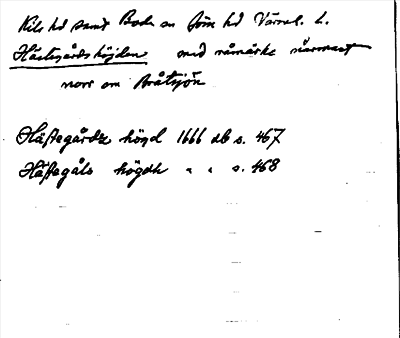 Kils hd samt Boda sn Jöss hd Värml. l.
Hästegårdshöjden med råmärke närmast
norr om Bråtsjön
Häftegårdz högd 1666 db s. 467
Häftegåls högdh " " s. 468